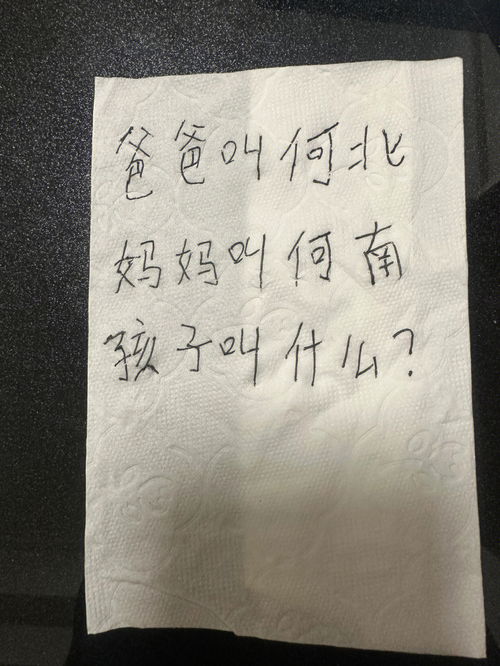 爸爸叫何北
妈妈叫何南
孩子叫什么?